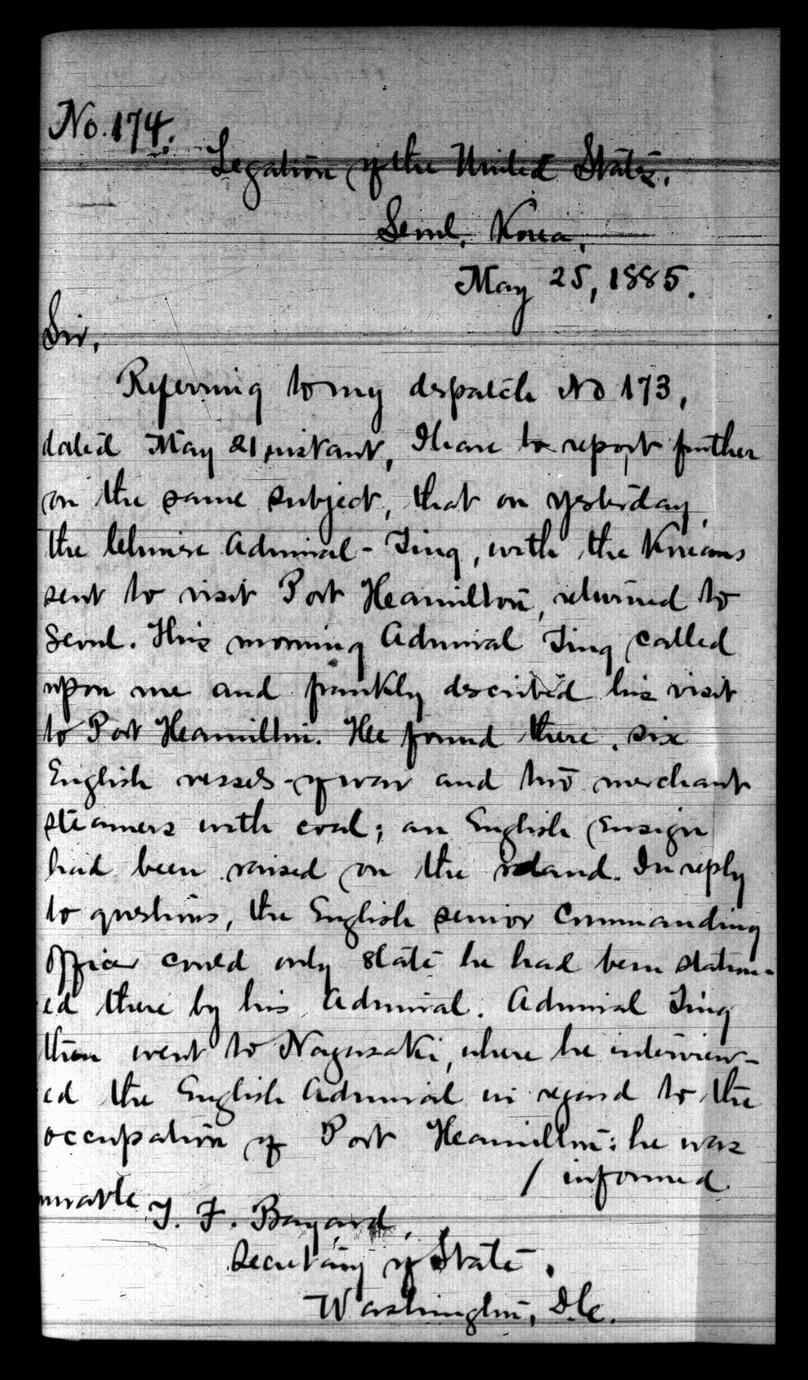 No. 174.
Legation of the United States,
Seoul, Korea,
May 25, 1885.
Sir,
Referring to my despatch No 173,
dated May 21 instant, I have to report further
on the same subject, that on yesterday,
the Chinese Admiral - Ting, with the Koreans
sent to visit Port Hamilton, returned to
Seoul. This morning Admiral Ting called
upon me and frankly described his visit
to Port Hamilton. He found there, six
English vessels-of-war and two merchant
steamers with coal; an English Ensign
had been raised on the island. In reply
to questions, the English senior Commanding
Officer could only state he had been station-
ed there by his Admiral. Admiral Ting
then went to Nagasaki, where he interview-
ed the English Admiral in regard to the
occupation of Port Hamilton: he was
/ informed
norable T. F. Bayard,
Secretary of State,
Washington, D.C.